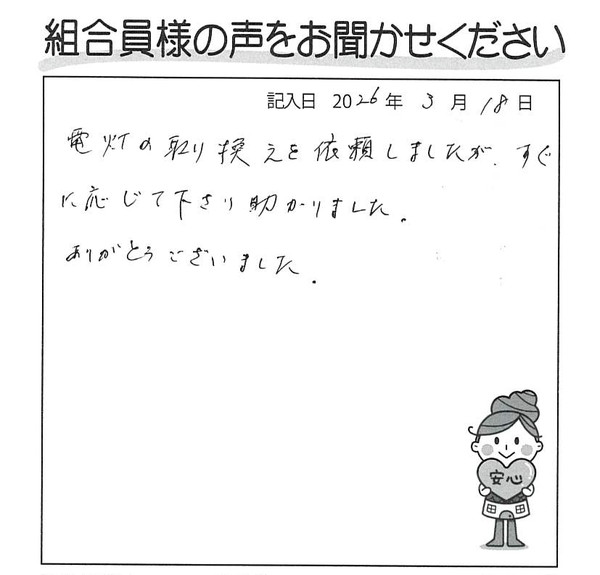 組合員様の声をお聞かせください
記入日 2026年 3月 18日
電灯の取り換えを依頼しましたが、すぐ
に応じて下さり助かりました。
ありがとうございました。
安心